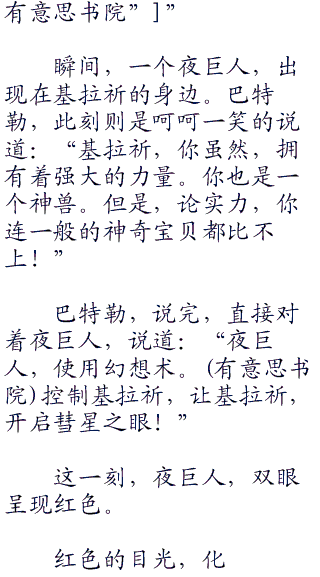 有意思书院”]”
瞬间，一个夜巨人，出
现在基拉祈的身边。巴特
勒，此刻则是呵呵一笑的说
道：“基拉祈，你虽然，拥
有着强大的力量。你也是一
个神兽。但是，论实力，你
连一般的神奇宝贝都比不
上！”
巴特勒，说完，直接对
着夜巨人，说道：“夜巨
人，使用幻想术。(有意思书
院)控制基拉祈，让基拉祈，
开启彗星之眼！”
这一刻，夜巨人，双眼
呈现红色。
红色的目光，化